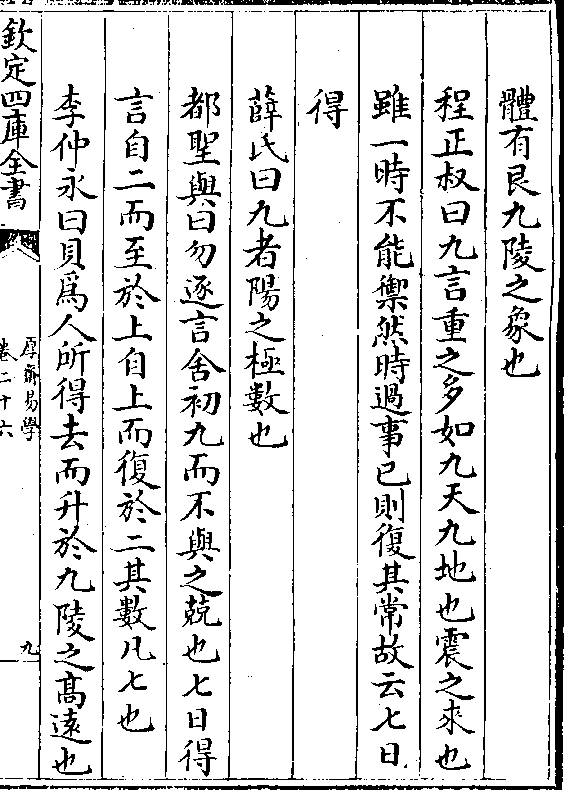 體有艮九陵之象也
程正叔曰九言重之多如九天九地也震之來也
雖一時不能禦然時過事已則復其常故云七日
得
薛氏曰九者陽之極數也
都聖與曰勿逐言舍初九而不與之兢也七日得
言自二而至於上自上而復於二其數凡七也
李仲永曰貝爲人所得去而升於九陵之髙遠也
欽定四庫全書
厚齋易學
卷二十六
九